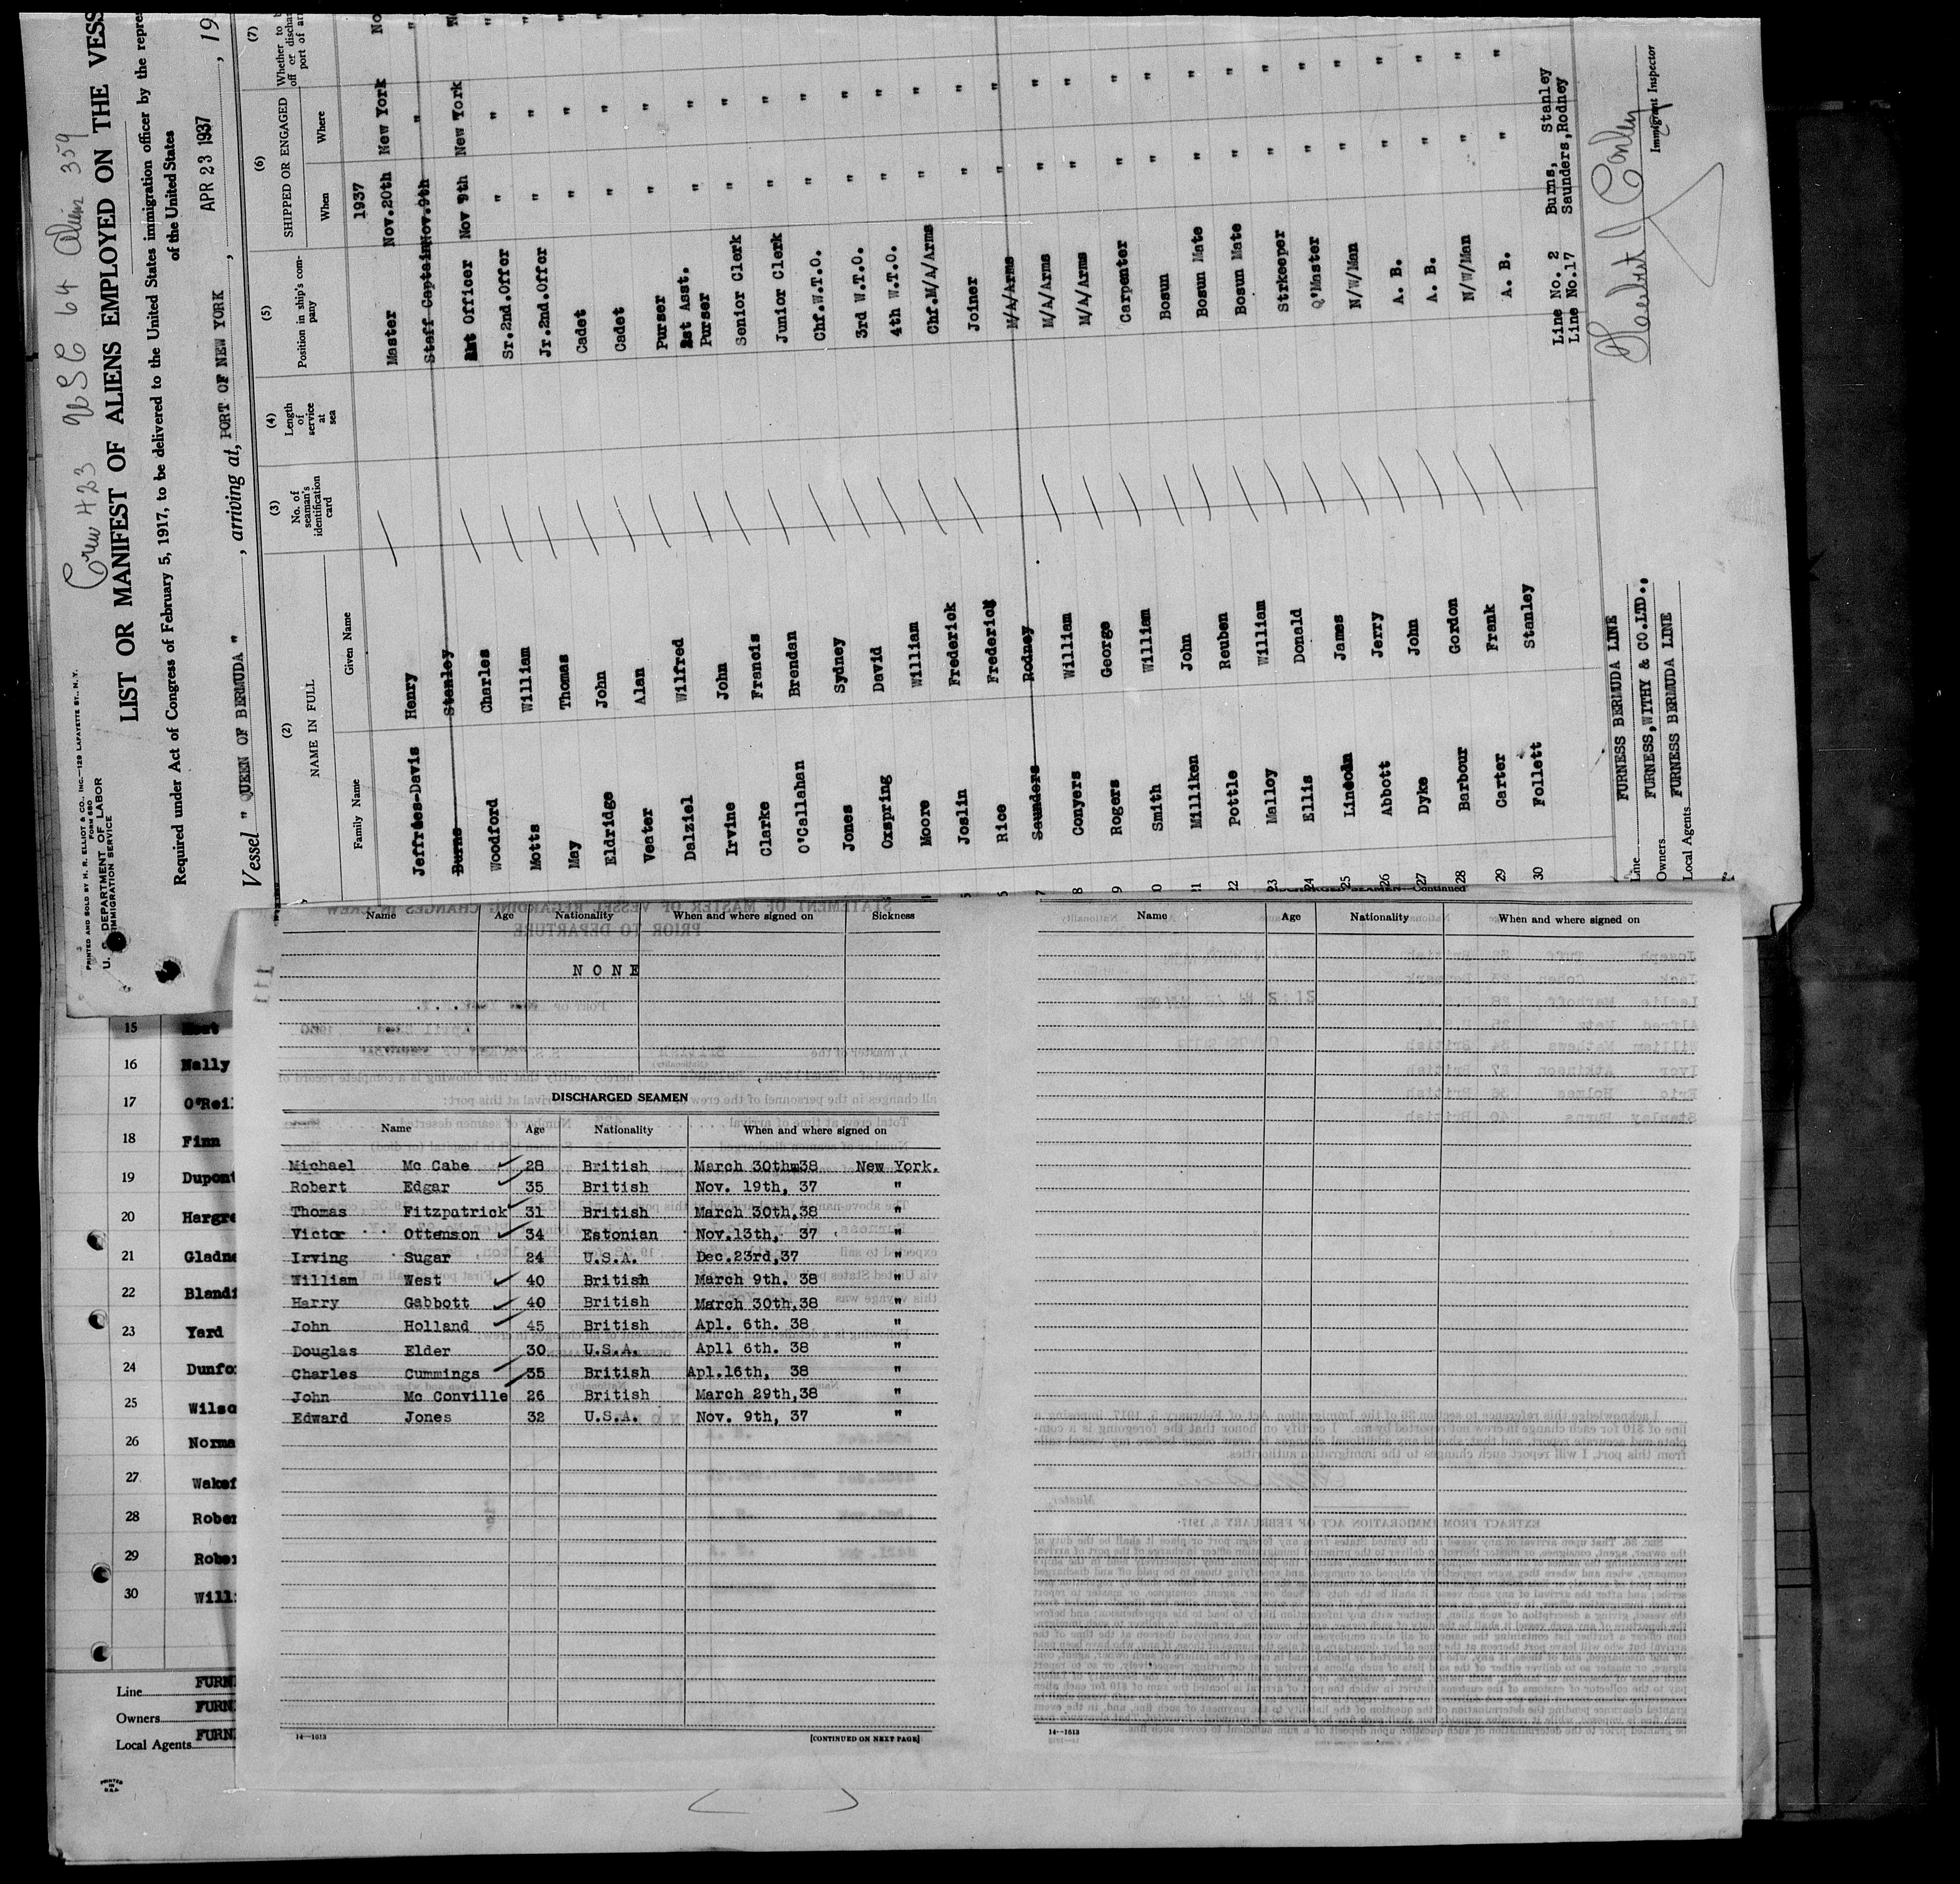 Crew 423 USC 64 Alien 359
PRINTED AND SOLD BY H. R. ELLIOT & CO., INC.—129 LAFAYETTE ST., N.Y.
FORM 680
U. S. DEPARTMENT OF LABOR
IMMIGRATION SERVICE
LIST OR MANIFEST OF ALIENS EMPLOYED ON THE VESS
Required under Act of Congress of February 5, 1917, to be delivered to the United States immigration officer by the repres
of the United States
Vessel " QUEEN OF BERMUDA " , arriving at, PORT OF NEW YORK , APR 23 1937 , 19
(2) (3) (4) (5) (6) (7)
NAME IN FULL No. of seaman's identification card Length of service at sea Position in ship's company SHIPPED OR ENGAGED Whether to b off or dischar port of arr
Family Name Given Name When Where
1937
Jeffries-Davis Henry Master Nov.20th New York No
Burns Stanley Staff Captain Nov.9th " "
Woodford Charles 1st Officer Nov 9th New York No
Motts William Sr.2nd.Offer " " "
May Thomas Jr.2nd.Offer " " "
Eldridge John Cadet " " "
Veater Alan Cadet " " "
Dalziel Wilfred Purser " " "
Irvine John 1st Asst. Purser " " "
Clarke Francis Senior Clerk " "
O'Callahan Brendan Junior Clerk " "
Jones Sydney Chf.W.T.O. " "
Oxspring David 3rd W.T.O. " "
Moore William 4th W.T.O. " "
Joslin Frederick Chf.M/A/Arms " "
Rice Frederick Joiner " "
Saunders Rodney M/A/Arms " "
8 Conyers William M/A/Arms " "
9 Rogers George M/A/Arms " "
0 Smith William Carpenter " "
21 Milliken John Bosun " "
22 Pottle Reuben Bosun Mate " "
23 Malloy William Bosun Mate " "
24 Ellis Donald Strkeeper " "
25 Lincoln James Q'Master " "
26 Abbott Jerry N/W/Man " "
27 Dyke John A. B. " "
28 Barbour Gordon A. B. " "
29 Carter Frank N/W/Man " "
30 Follett Stanley A. B. " "
Line No. 2 Burns, Stanley
Line No.17 Saunders,Rodney
Line FURNESS BERMUDA LINE
Owners FURNESS,WITHY & CO.LTD.,
Local Agents FURNESS BERMUDA LINE
Immigrant Inspector
Name Age Nationality When and where signed on Sickness
NONE
DISCHARGED SEAMEN
Name Age Nationality When and where signed on
Michael Mc Cabe 28 British March 30thm38 New York.
Robert Edgar 35 British Nov. 19th, 37 "
Thomas Fitzpatrick 31 British March 30th,38 "
Victor Ottenson 34 Estonian Nov.13th, 37 "
Irving Sugar 24 U.S.A. Dec.23rd,37 "
William West 40 British March 9th. 38 "
Harry Gabbott 40 British March 30th,38 "
John Holland 45 British Apl. 6th. 38 "
Douglas Elder 30 U.S.A. Apll 6th. 38 "
Charles Cummings 35 British Apl.16th, 38 "
John Mc Conville 26 British March 29th,38 "
Edward Jones 32 U.S.A. Nov. 9th, 37 "
14—1613
[CONTINUED ON NEXT PAGE]
Name Age Nationality When and where signed on
14—1613
15
16 Nally
17 O'Rei
18 Finn
19 Dupont
20 Hargre
21 Gladne
22 Blandi
23 Yard
24 Dunfo
25 Wilso
26 Norma
27 Wakef
28 Rober
29 Rober
30 Will
Line FURN
Owners FURN
Local Agents FURN
PRINTED IN U.S.A.